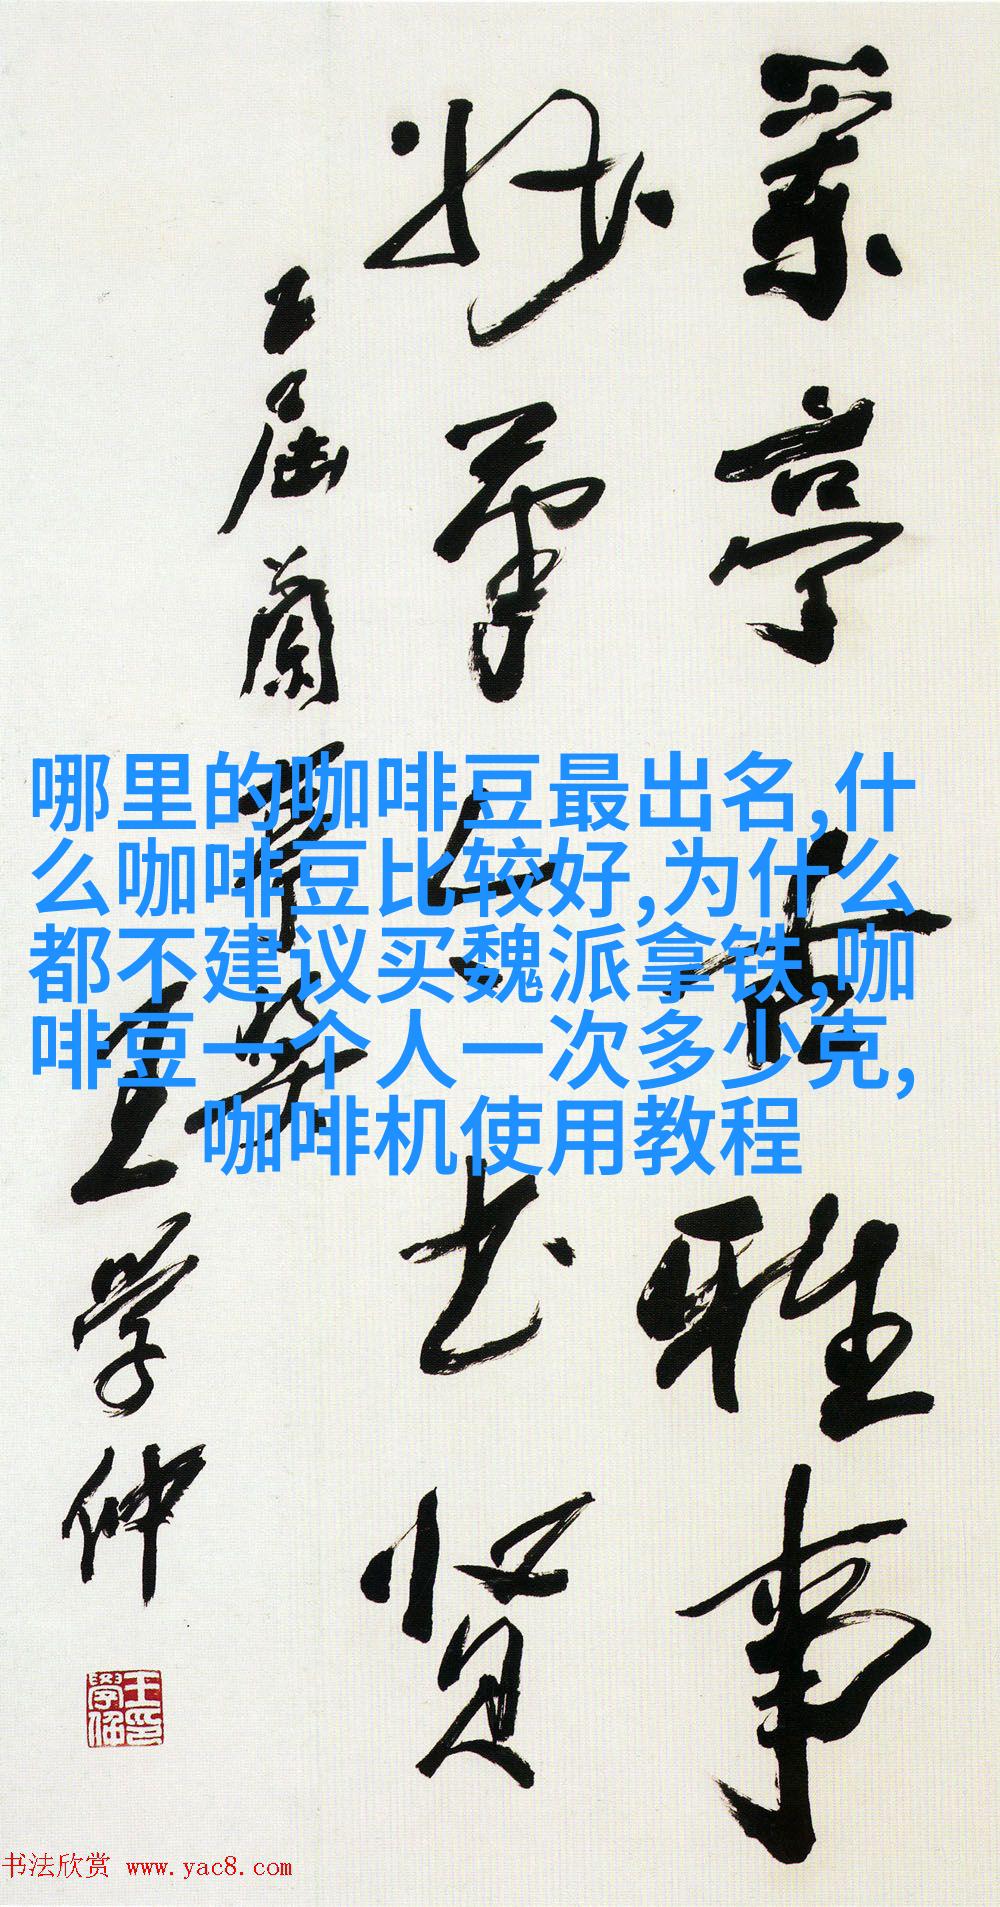 兰亭存雅事
妙笔
书贤
五届兰
王学仲
哪里的咖啡豆最出名,什
么咖啡豆比较好,为什么
都不建议买魏派拿铁,咖
啡豆一个人一次多少克,
咖啡机使用教程
王学仲印
书法欣赏 www.yac8.com